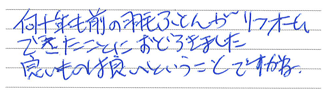 何十年も前の羽毛ふとんがリフォーム
できたことにおどろきました
良いものは良いということですかね。